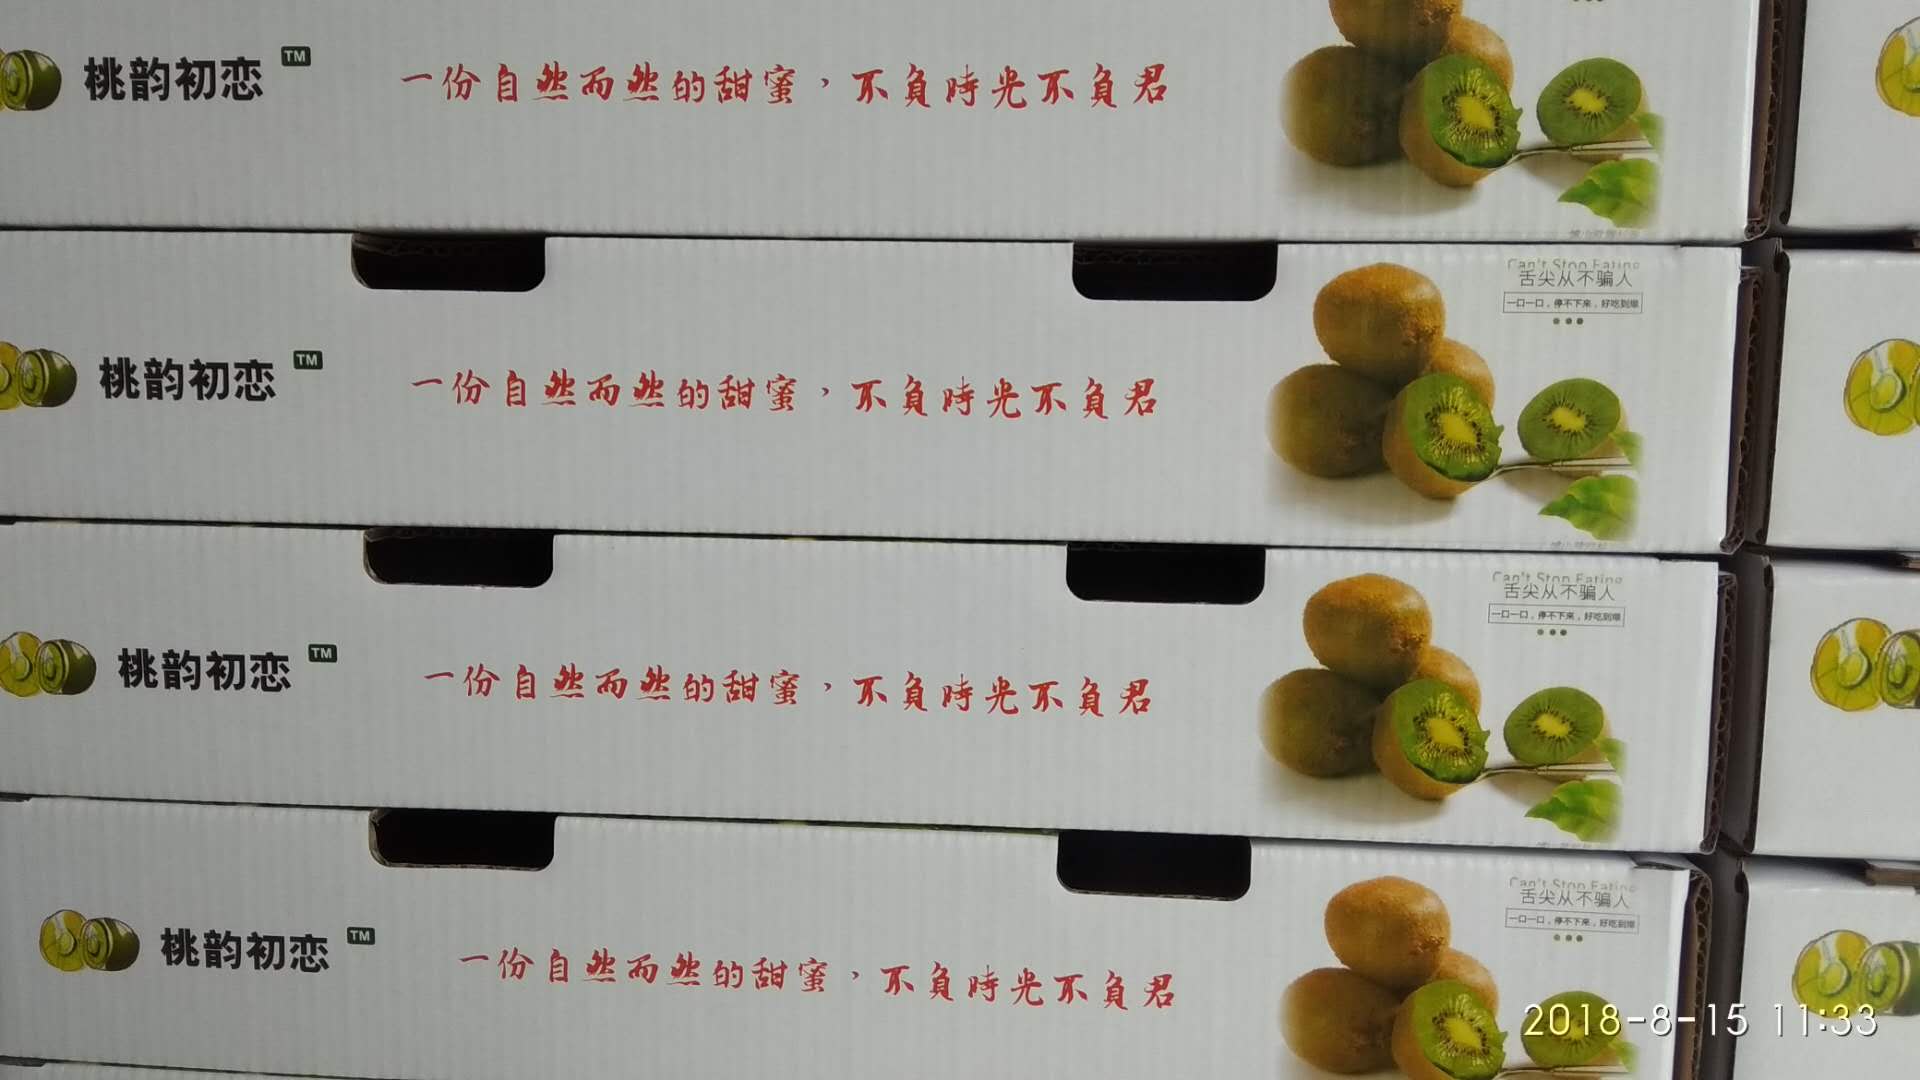 桃韵初恋 TM 一份自然而然的甜蜜，不負時光不負君
Can't Stop Eating
舌尖从不骗人
一口一口，停不下来，好吃到爆
桃韵初恋 TM 一份自然而然的甜蜜，不負時光不負君
Can't Stop Eating
舌尖从不骗人
一口一口，停不下来，好吃到爆
桃韵初恋 TM 一份自然而然的甜蜜，不負時光不負君
Can't Stop Eating
舌尖从不骗人
一口一口，停不下来，好吃到爆
桃韵初恋 TM 一份自然而然的甜蜜，不負時光不負君
2018-8-15 11:33